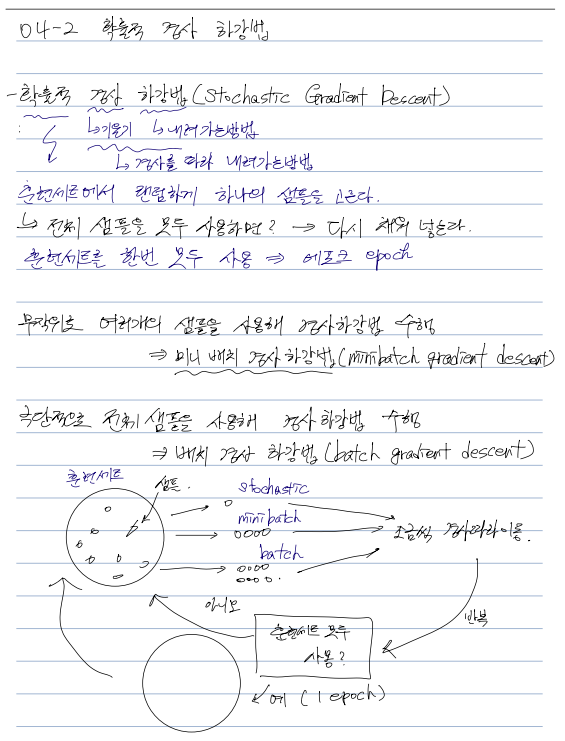 04-2 확률적 경사 하강법
- 확률적 경사 하강법(Stochastic Gradient Descent)
: ↳기울기 ↳내려가는방법
↳ 경사를 따라 내려가는방법
훈련세트에서 랜덤하게 하나의 샘플을 고른다.
↳ 전체 샘플을 모두 사용하면? → 다시 채워 넣는다.
훈련세트를 한번 모두 사용 ⇒ 에포크 epoch
무작위로 여러개의 샘플을 사용해 경사하강법 수행
⇒ 미니 배치 경사 하강법(minibatch gradient descent)
극단적으로 전체 샘플을 사용해 경사 하강법 수행
⇒ 배치 경사 하강법(batch gradient descent)
훈련세트
샘플.
stochastic
minibatch
batch
조금씩 경사따라 이동.
반복
아니오
훈련세트 모두
사용?
예 (1 epoch)